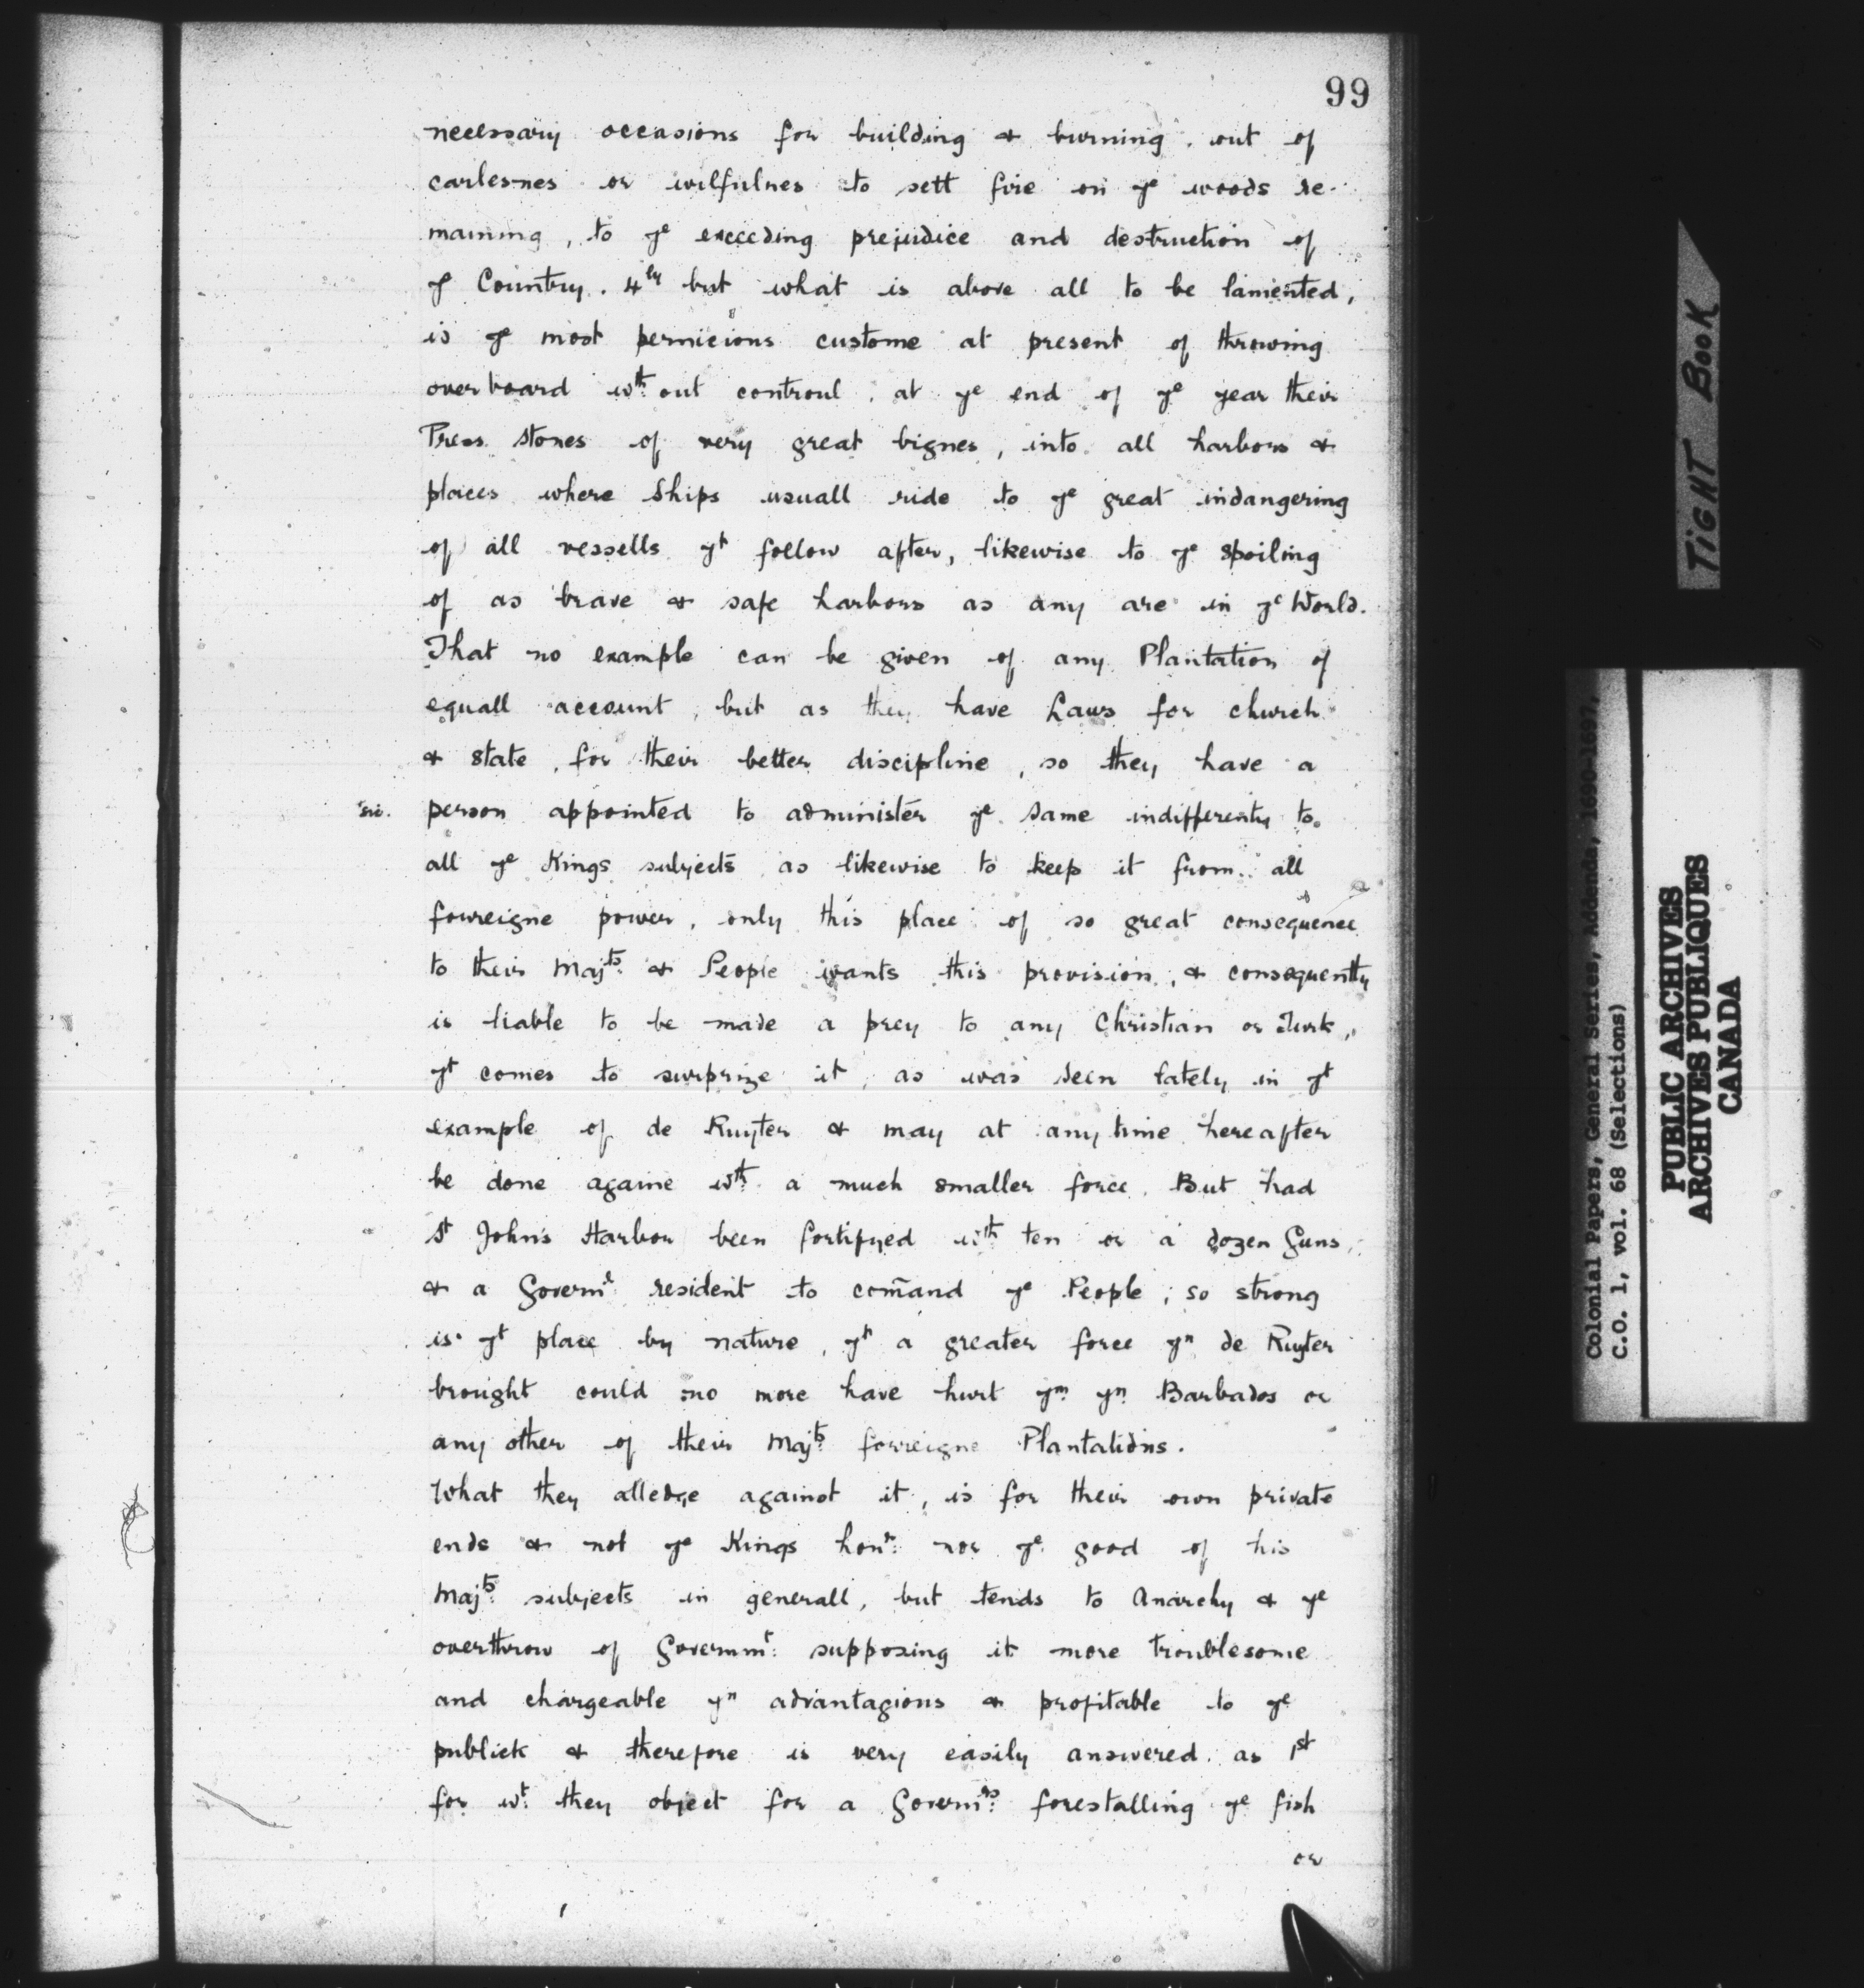 99
necessary occasions for building & burning. out of
carlesnes or wilfulnes to sett fire on ye woods re-
maining, to ye exceeding prejudice and destruction of
ye Country. 4ly but what is above all to be lamented,
is ye most pernicious custome at present of throwing
overboard wth out controul. at ye end of ye year their
Press stones of very great bignes, into all harbors &
places where Ships usuall ride to ye great indangering
of all vessells yt follow after, likewise to ye spoiling
of as brave & safe harbors as any are in ye World.
That no example can be given of any Plantation of
equall account, but as they have Laws for church
& state, for their better discipline, so they have a
sic. person appointed to administer ye same indifferently to
all ye Kings subjects as likewise to keep it from all
fowreigne power, only this place of so great consequence
to their Majts. & People wants this provision, & consequently
is liable to be made a prey to any Christian or Turk,
yt comes to surprize it, as was seen lately in yt
example of de Ruyter & may at any time hereafter
be done againe wth. a much smaller force. But had
St John's Harbor been fortifyed wth ten or a dozen Guns,
& a Governr resident to comānd ye People, so strong
is yt place by nature, yt a greater force yn de Ruyter
brought could no more have hurt ym yn Barbados or
any other of their Majts. forreigne Plantations.
What they alledge against it, is for their own private
ends & not ye Kings honr: nor ye good of his
Majts. subjects in generall, but tends to Anarchy & ye
overthrow of Governmt: supposing it more troublesome
and chargeable yn advantagious & profitable to ye
publick & therefore is very easily answered. as 1st
for wt: they object for a Governrs: forestalling ye fish
or
TIGHT BOOK
Colonial Papers, General Series, Addenda, 1690-1697,
C.O. 1, vol. 68 (Selections)
PUBLIC ARCHIVES
ARCHIVES PUBLIQUES
CANADA